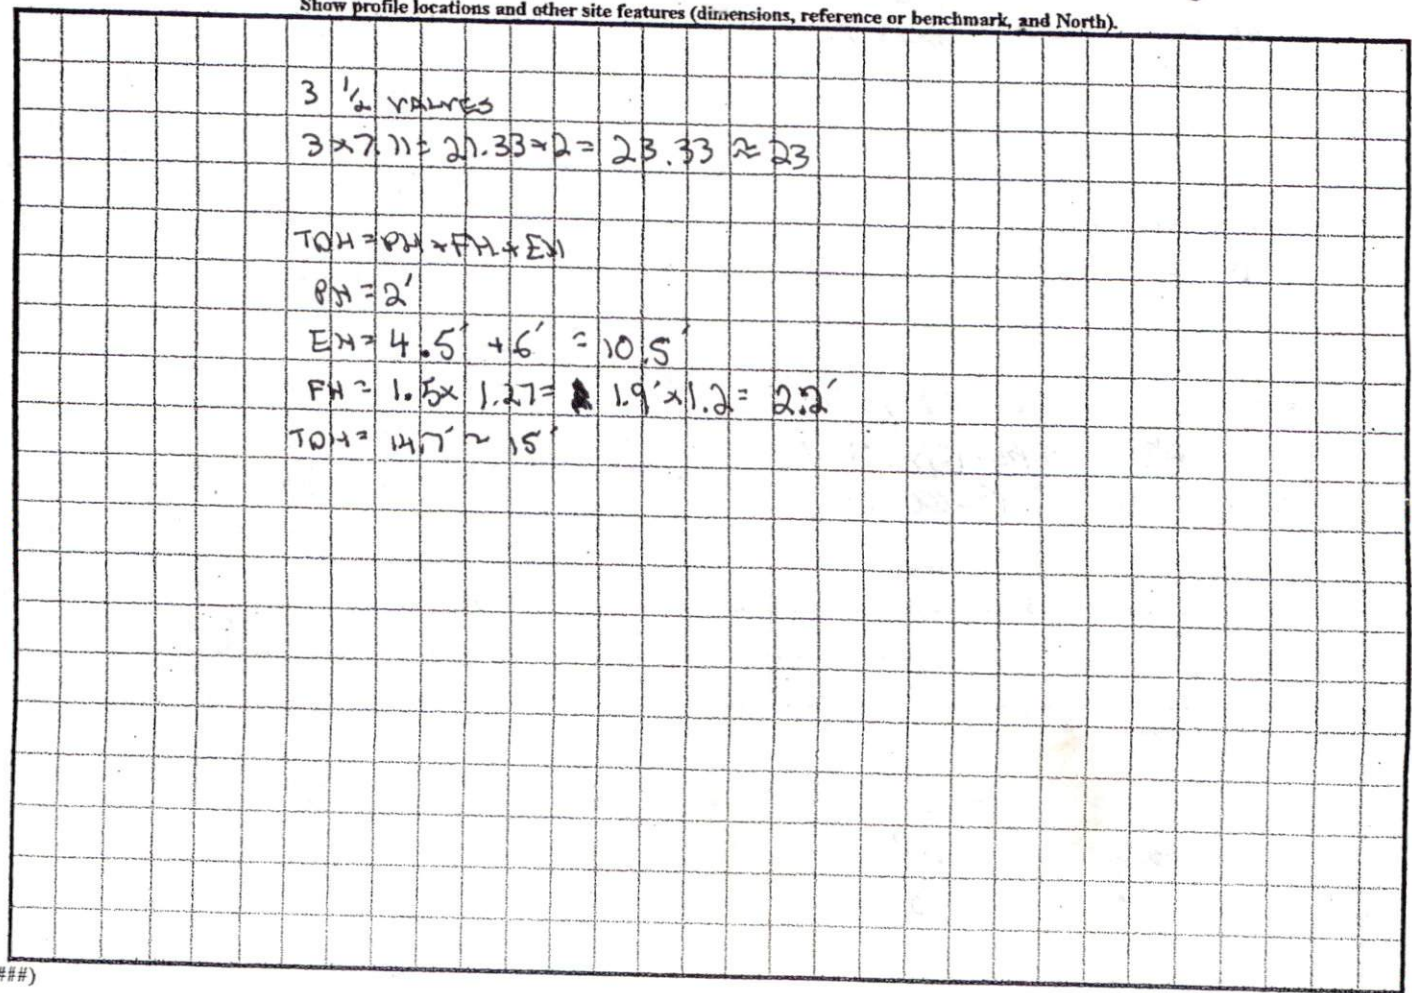 Show profile locations and other site features (dimensions, reference or benchmark, and North).
3 1/2 VALVES
3 x 7.11 = 21.33 + 2 = 23.33 ≈ 23
TDH = PH + FH + EH
PH = 2'
EH = 4.5' + 6' = 10.5'
FH = 1.5 x 1.27 = 1.9' x 1.2 = 2.2'
TDH = 14.7' ~ 15'
###)